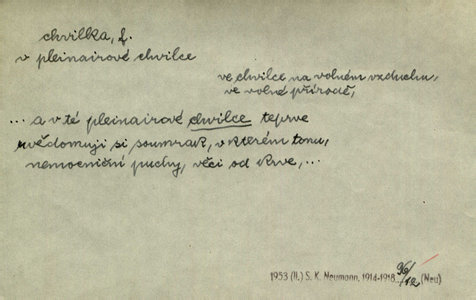 chvilka, f.
v pleinairové chvilce
ve chvilce na volném vzduchu,
ve volné přírodě,
... a v té pleinairové chvilce teprve
uvědomuji si soumrak, v kterém tonu,
nemocniční puchy, věci od krve, ...
1953 (II.) S. K. Neumann, 1914-1918. 96/12 (Neu)